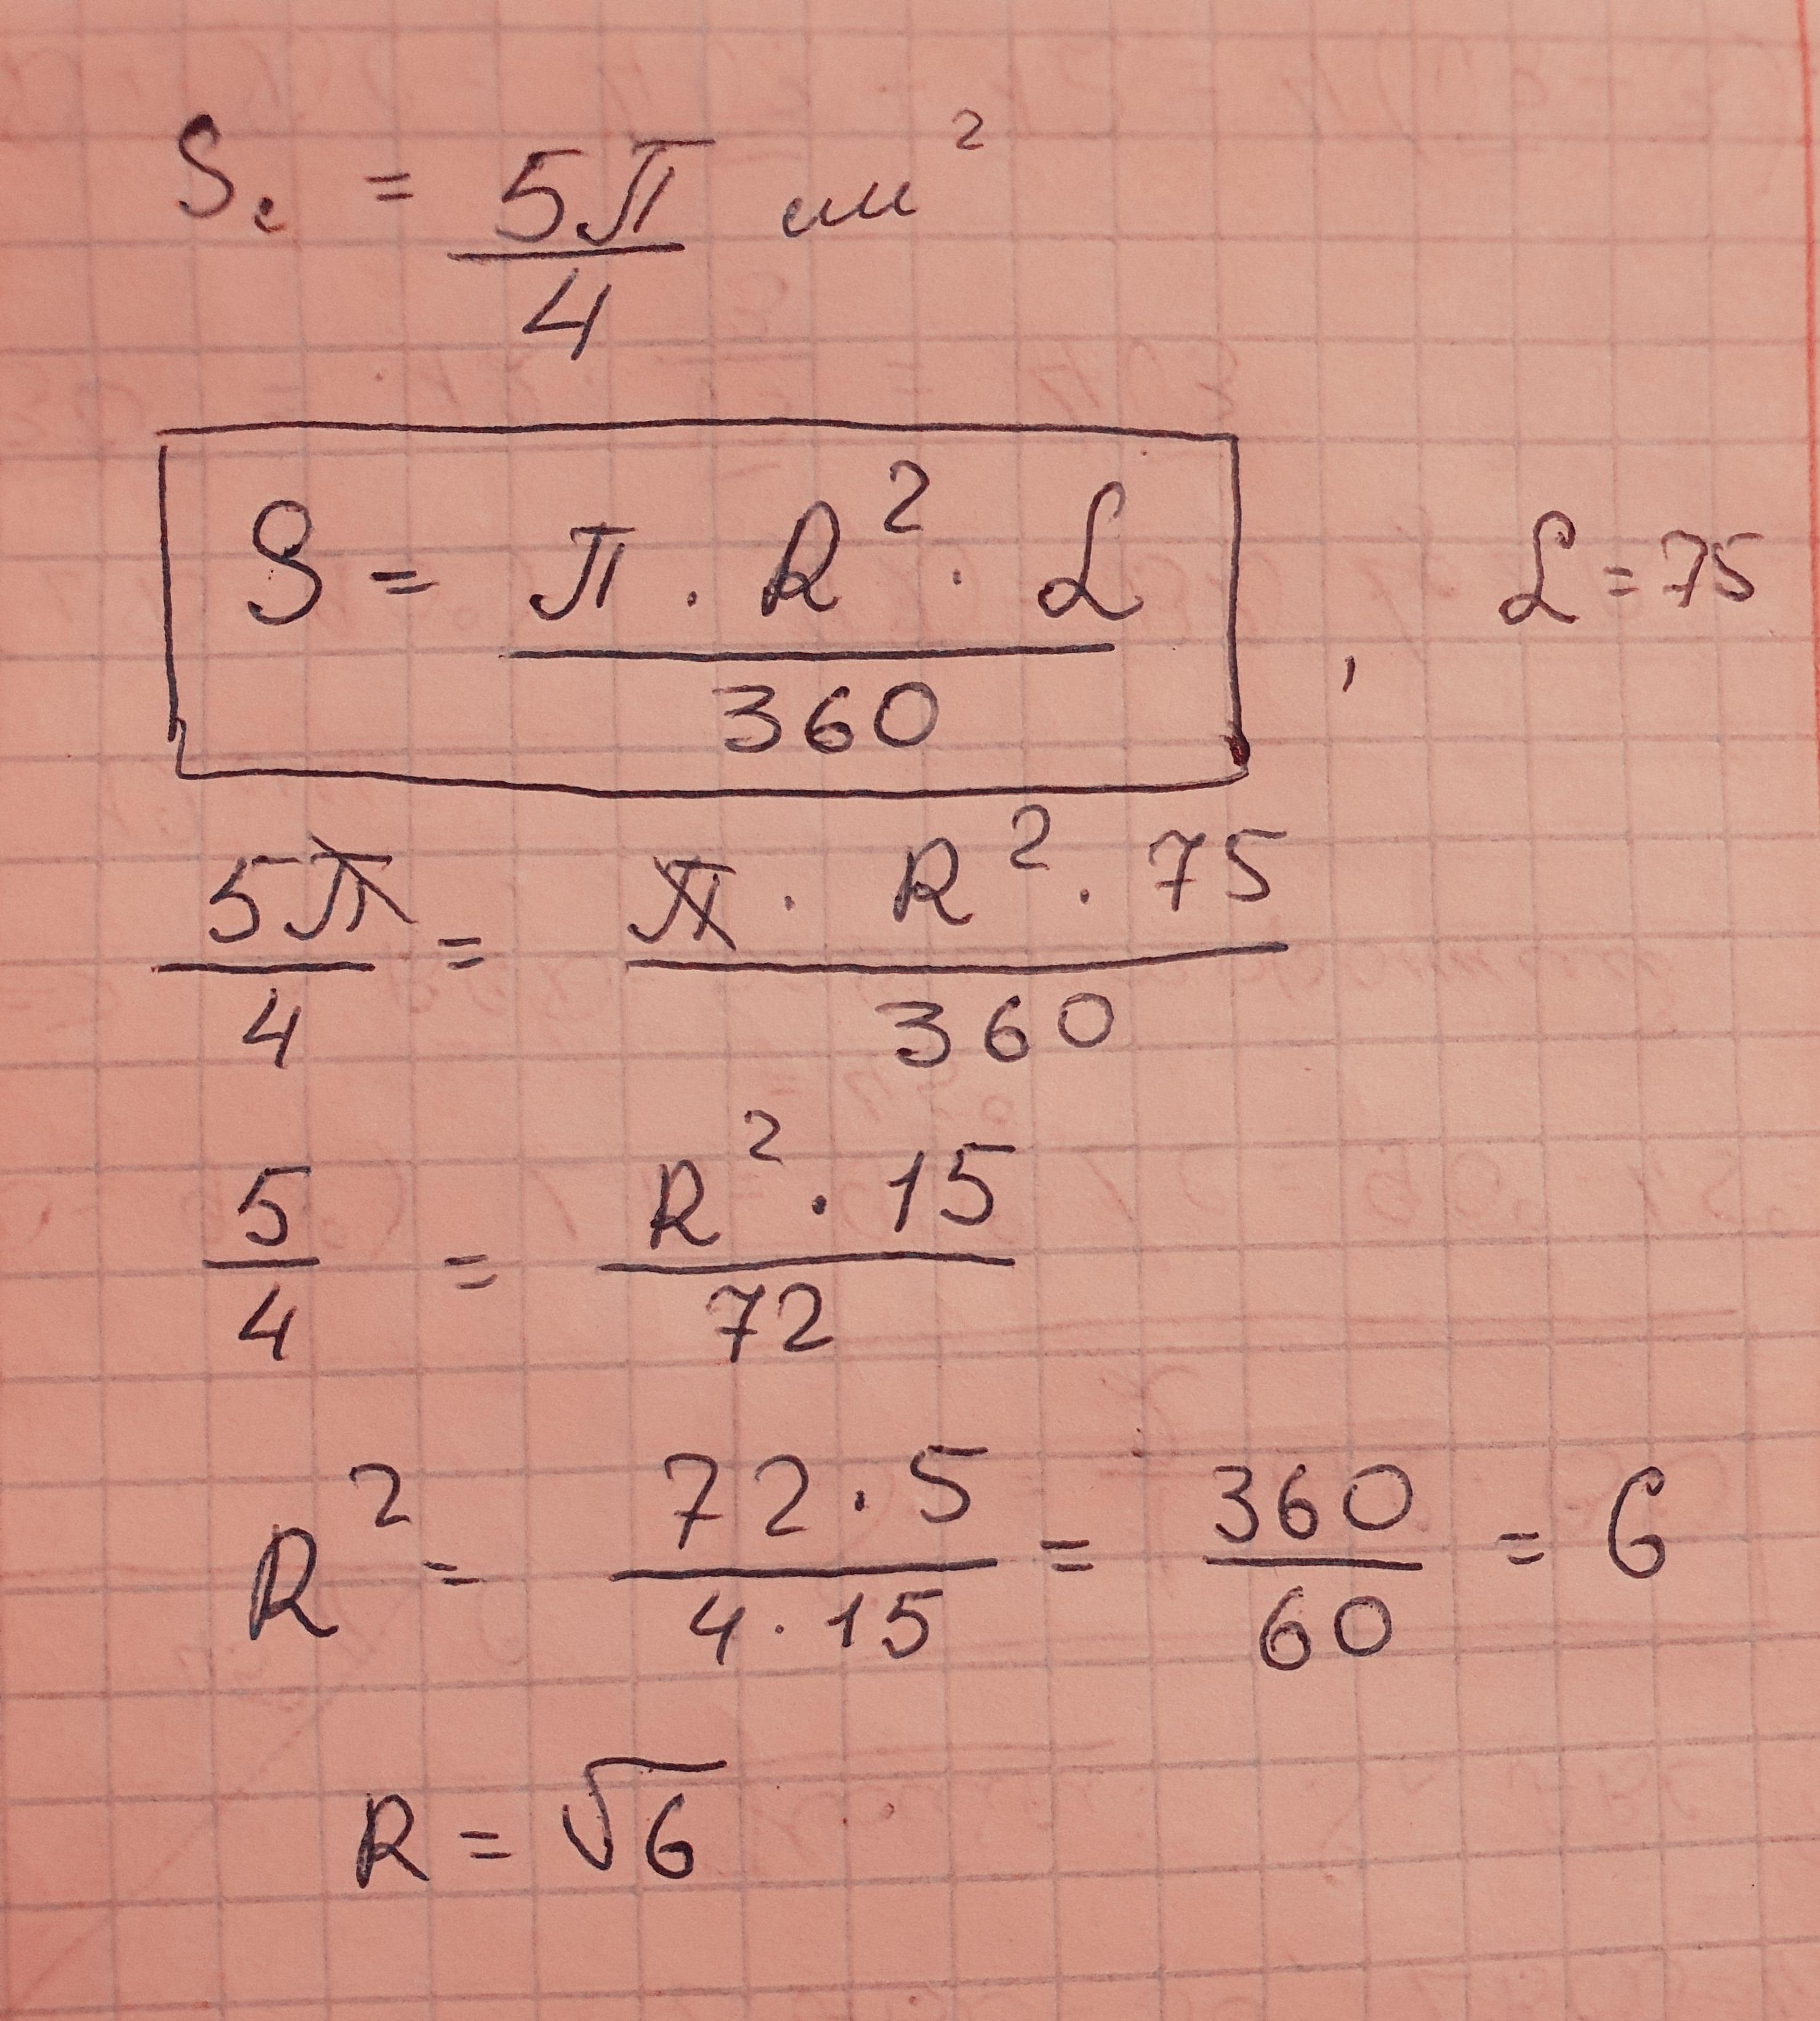 S. = 5π/4 см²
S = π · R² · L / 360 , L = 75
5π/4 = π · R² · 75 / 360
5/4 = R² · 15 / 72
R² = 72 · 5 / 4 · 15 = 360/60 = 6
R = √6